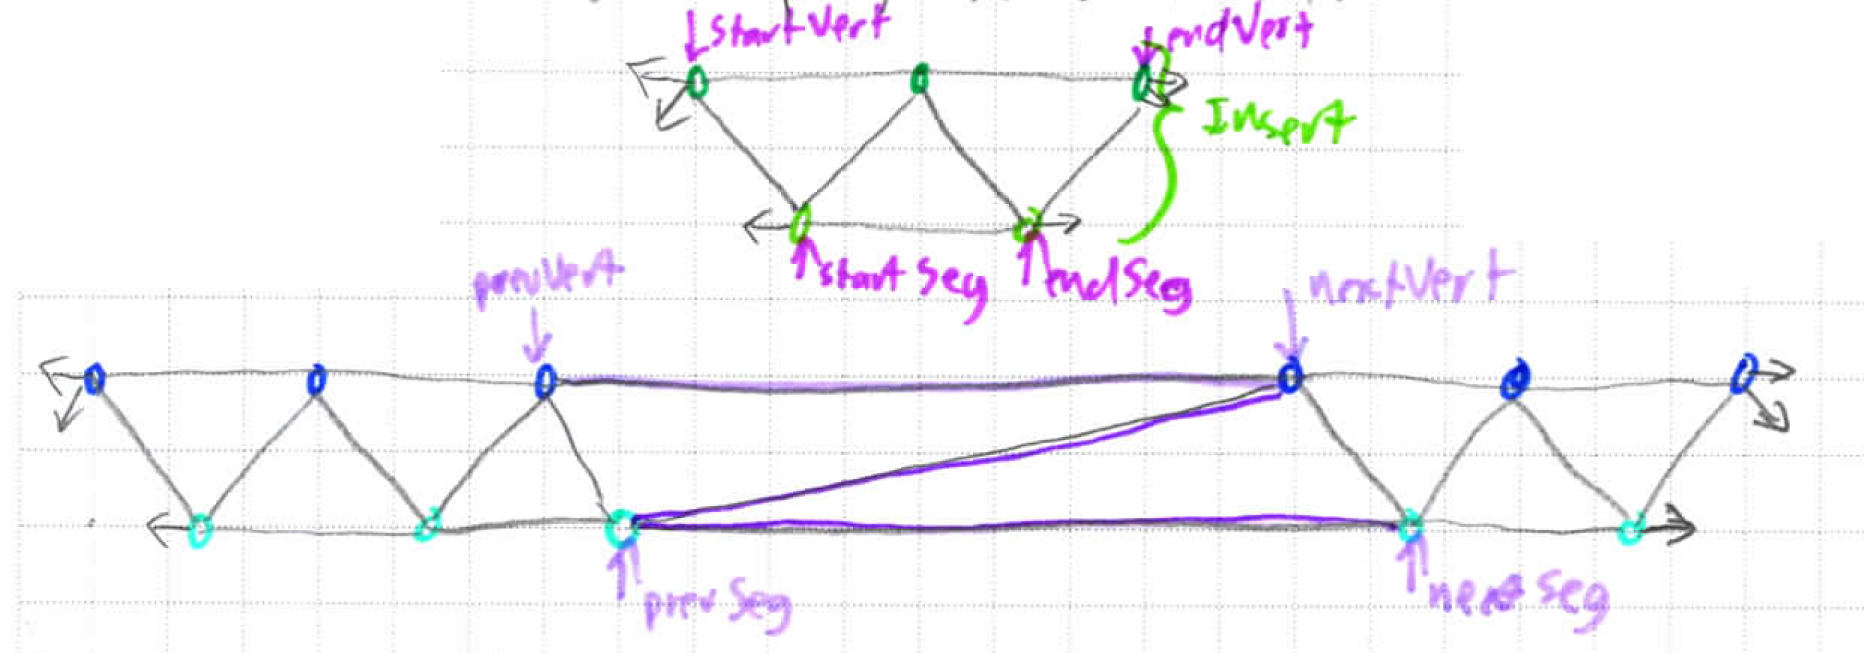 startVert
endVert
Insert
startSeg
endSeg
prevVert
nextVert
prevSeg
nextSeg